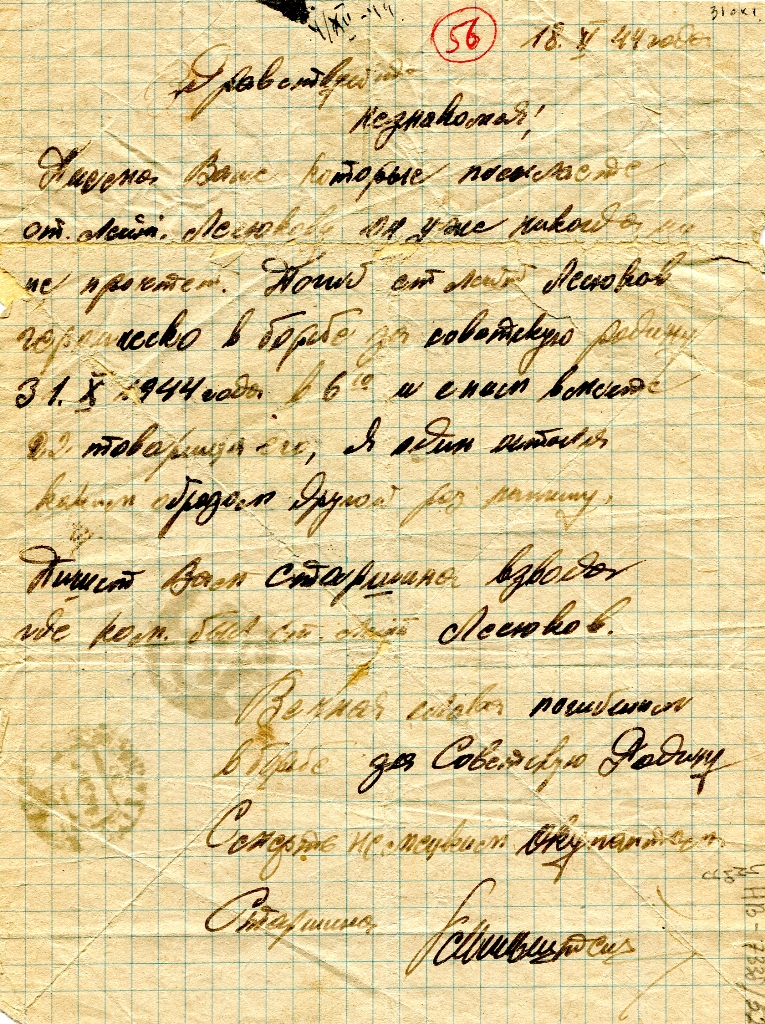 4/XII-44.
31 окт.
56
18. XI 44 года
Здравствуйте
незнакомая!
Письма Ваше которые посылаете
ст. лейт. Лесюкову он уже никогда
не прочтет. Погиб ст лейт Лесюков
геройческо в борьбе за советскую родину
31. X 1944 года в 6 10 и с ним вместе
22 товарища его, я один остался
каким образом другой раз напишу.
Пишет Вам старшина взвода
где ком. был ст. лейт Лесюков.
Вечная слава погибшим
в борьбе за Советскую Родину
Смерть немецким окупантам
Старшина